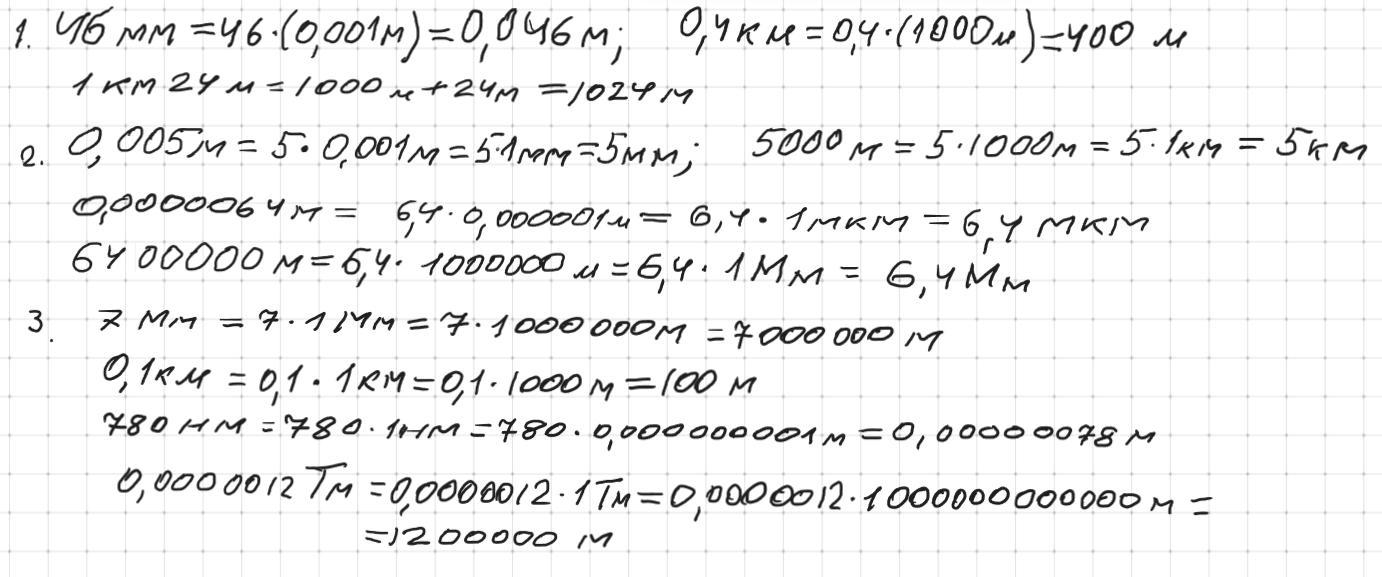 1. 46 мм = 46·(0,001м) = 0,046 м; 0,4 км = 0,4·(1000м) = 400 м
1 км 24 м = 1000 м + 24м = 1024 м
2. 0,005м = 5· 0,001м = 5·1мм = 5мм; 5000 м = 5·1000м = 5·1км = 5км
0,0000064м = 6,4·0,000001м = 6,4· 1мкм = 6,4 мкм
6400000 м = 6,4· 1000000 м = 6,4· 1Мм = 6,4Мм
3. 7 Мм = 7·1Мм = 7·1000 000м = 7000 000 м
0,1км = 0,1· 1км = 0,1·1000 м = 100 м
780 нм = 780·1нм = 780·0,000000001м = 0,00000078 м
0,0000012 Тм = 0,0000012·1Тм = 0,0000012·1000000000000 м =
= 1200000 м